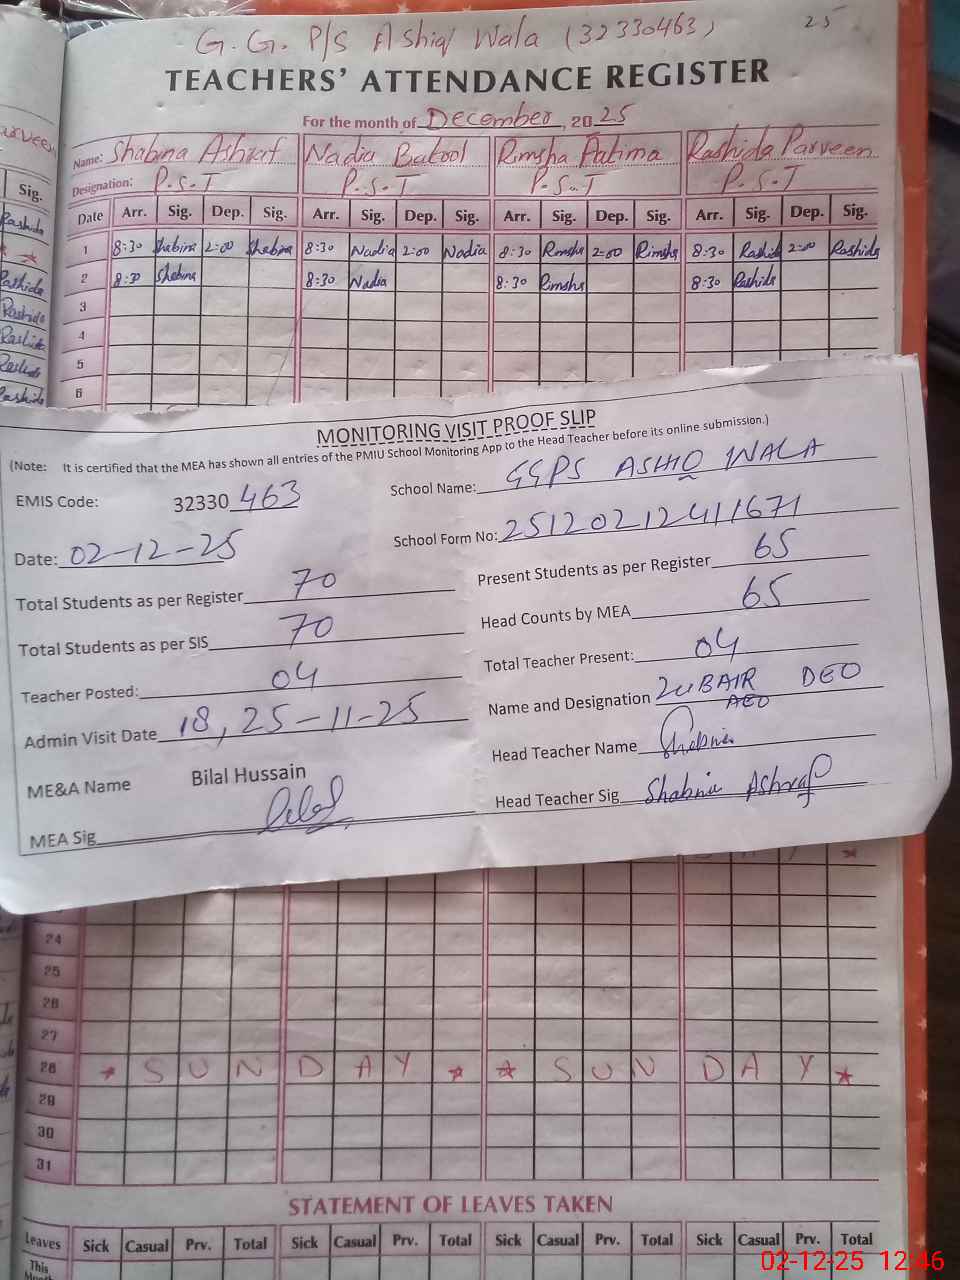 25
G.G. P/S Ashiq Wala (32330463)
TEACHERS' ATTENDANCE REGISTER
For the month of December, 2025
Name: Shabina Ashraf Nadia Batool Rimsha Fatima Rashida Parveen
Designation: P.S.T P.S.T P.S.T P.S.T
Sig.
Date Arr. Sig. Dep. Sig. Arr. Sig. Dep. Sig. Arr. Sig. Dep. Sig. Arr. Sig. Dep. Sig.
1 8:30 Shabina 2:00 Shabina 8:30 Nadia 2:00 Nadia 8:30 Rimsha 2:00 Rimsha 8:30 Rashida 2:00 Rashida
2 8:30 Shabina 8:30 Nadia 8:30 Rimsha 8:30 Rashida
3
4
5
6
MONITORING VISIT PROOF SLIP
(Note: It is certified that the MEA has shown all entries of the PMIU School Monitoring App to the Head Teacher before its online submission.)
EMIS Code: 32330 463 School Name: GGPS ASHIQ WALA
Date: 02-12-25 School Form No: 25120212411671
Total Students as per Register 70 Present Students as per Register 65
Total Students as per SIS 70 Head Counts by MEA 65
Teacher Posted: 04 Total Teacher Present: 04
Admin Visit Date 18, 25-11-25 Name and Designation ZUBAIR DEO
AEO
ME&A Name Bilal Hussain Head Teacher Name Shabnia
MEA Sig Bilal Head Teacher Sig Shabnia Ashraf
24
25
26
27
28 * SUNDAY * * SUNDAY *
29
30
31
STATEMENT OF LEAVES TAKEN
Leaves Sick Casual Prv. Total Sick Casual Prv. Total Sick Casual Prv. Total Sick Casual Prv. Total
This
02-12-25 12:46